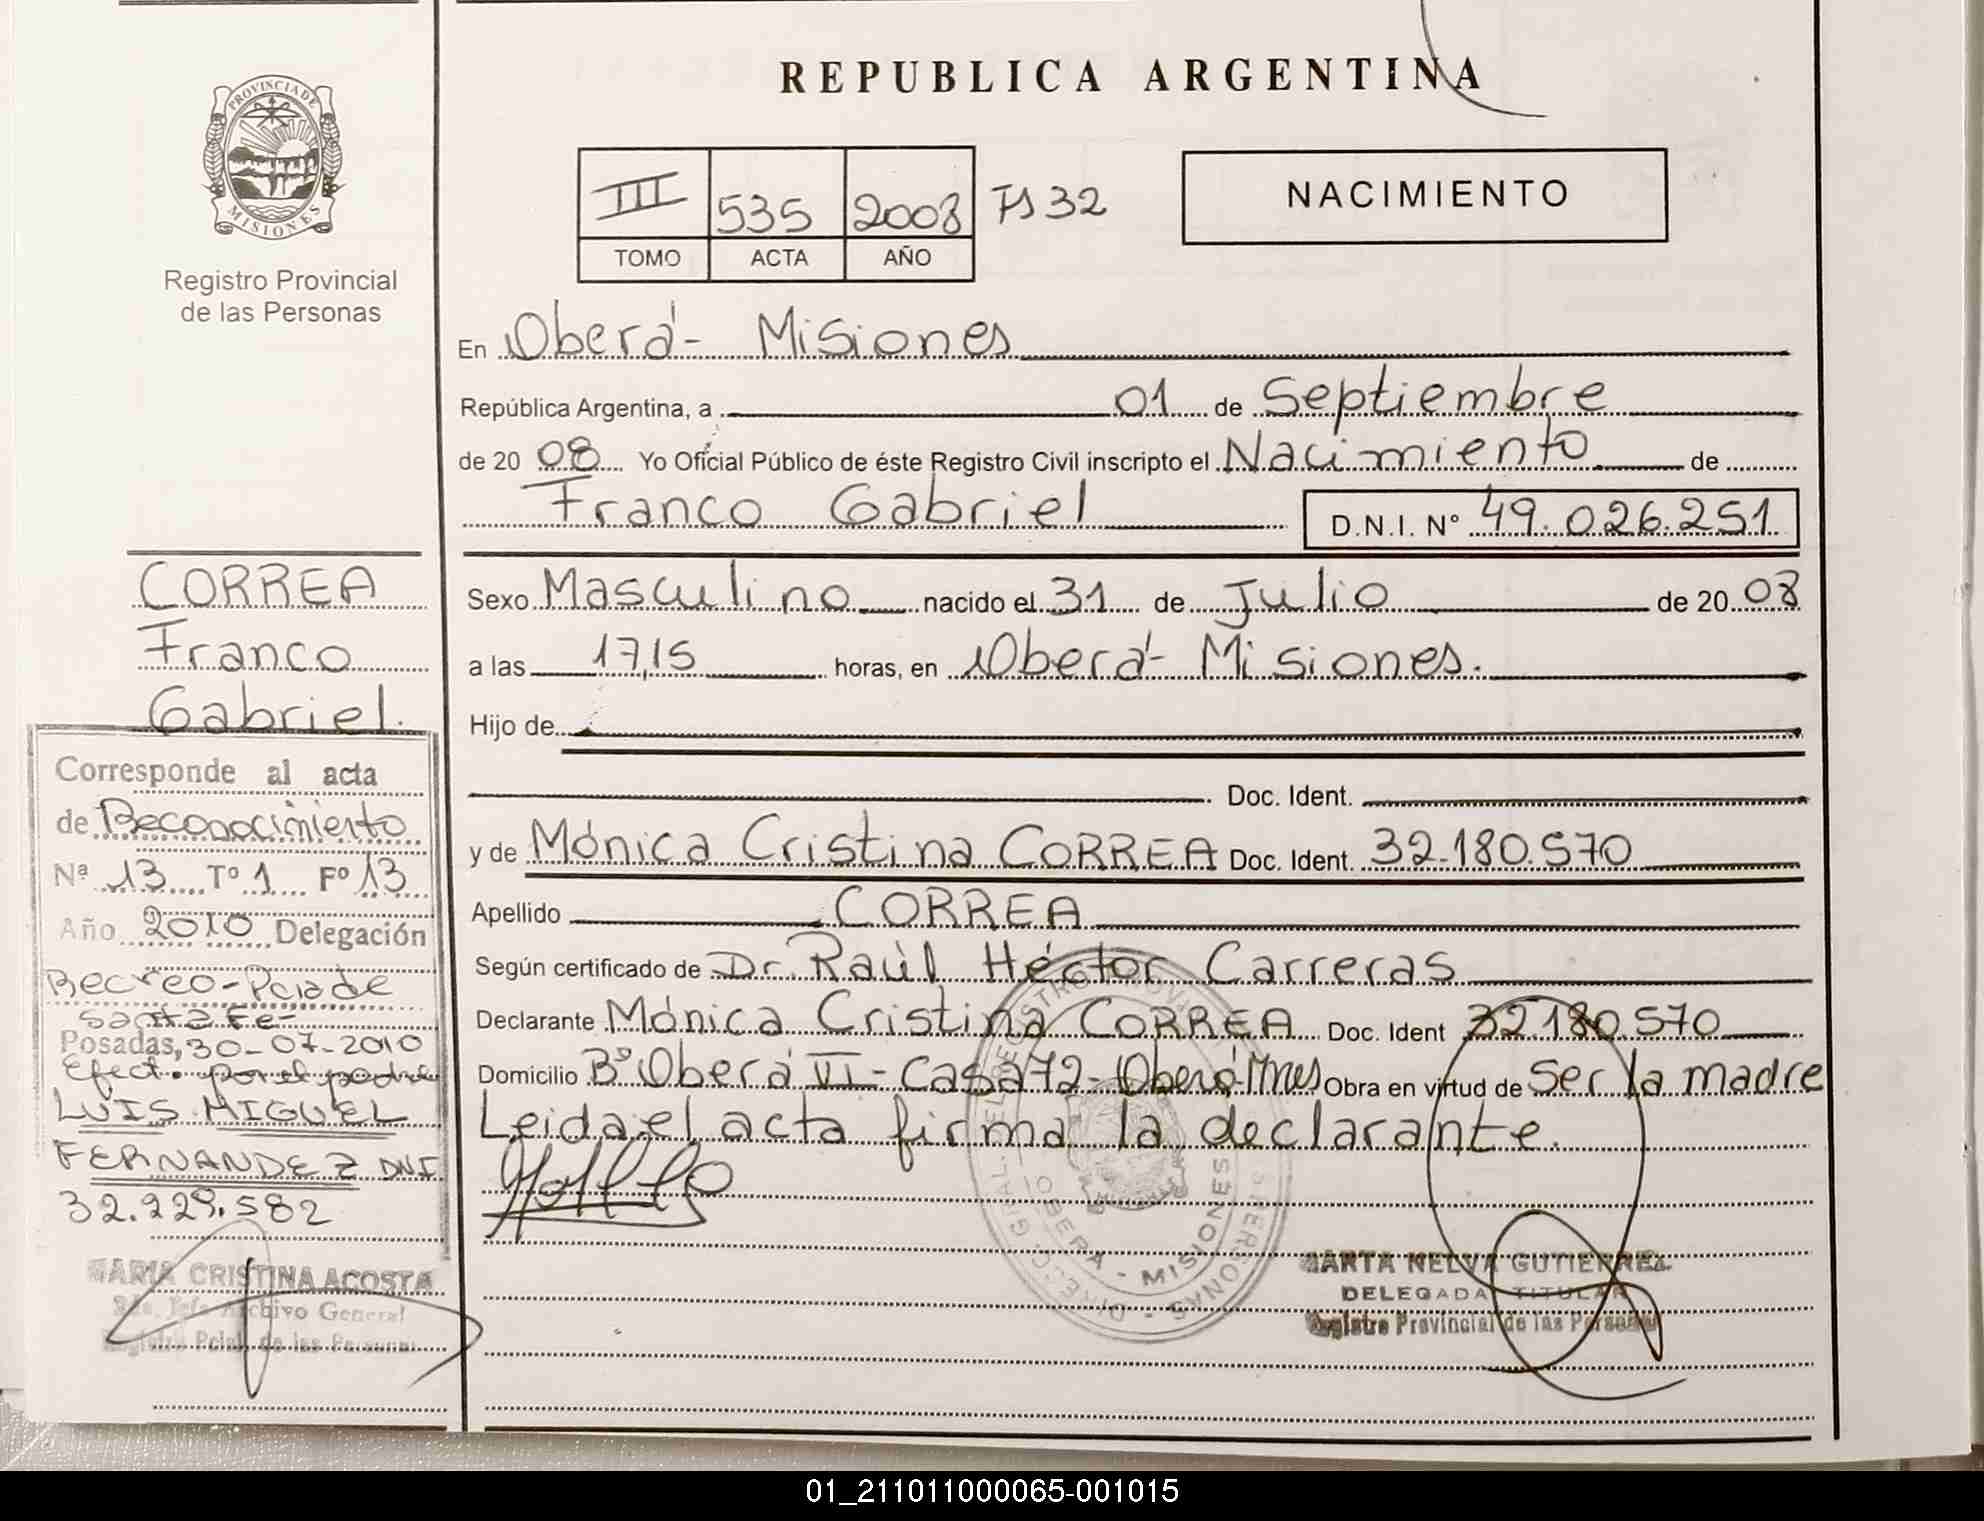 PROVINCIA DE
MISIONES
Registro Provincial
de las Personas
REPUBLICA ARGENTINA
III 535 2008 Fs 32
TOMO ACTA AÑO
NACIMIENTO
En Oberá - Misiones
República Argentina, a 01 de Septiembre
de 20 08 Yo Oficial Público de éste Registro Civil inscripto el Nacimiento de
Franco Gabriel D.N.I. N° 49.026.251
Sexo Masculino nacido el 31 de Julio de 20 08
a las 17,15 horas, en Oberá - Misiones.
Hijo de
Doc. Ident.
y de Mónica Cristina CORREA Doc. Ident. 32.180.570
Apellido CORREA
Según certificado de Dr. Raúl Héctor Carreras
Declarante Mónica Cristina CORREA Doc. Ident 32.180.570
Domicilio B° Oberá VI - Casa 72 - Oberá - Mnes Obra en virtud de Ser la madre
Leida el acta firma la declarante.
OBERA - MISIONES
MARTA NELVA GUTIERREZ
DELEGADA TITULAR
Registro Provincial de las Personas
CORREA
Franco
Gabriel.
Corresponde al acta
de Reconocimiento
Nª 13 T° 1 F° 13
Año 2010 Delegación
Recreo - Pcia de
Santa Fe -
Posadas, 30-07-2010
Efect. por el padre
LUIS MIGUEL
FERNANDEZ DNI
32.229.582
MARIA CRISTINA ACOSTA
Archivo General
Registro Pcial. de las Personas
01_211011000065-001015